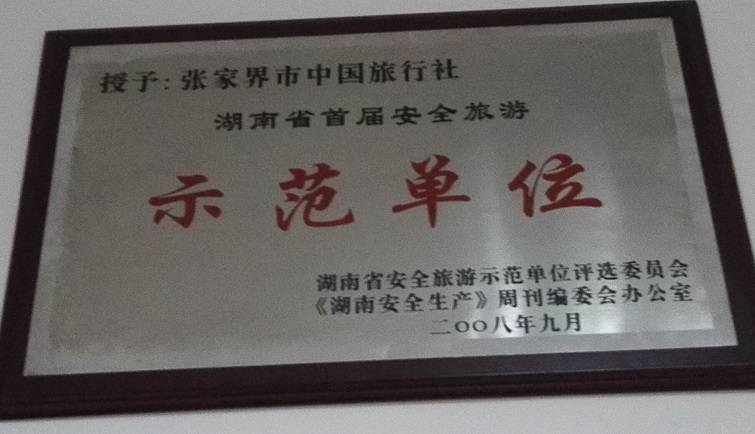 授予:张家界市中国旅行社
湖南省首届安全旅游
示范单位
湖南省安全旅游示范单位评选委员会
《湖南安全生产》周刊编委会办公室
二〇〇八年九月